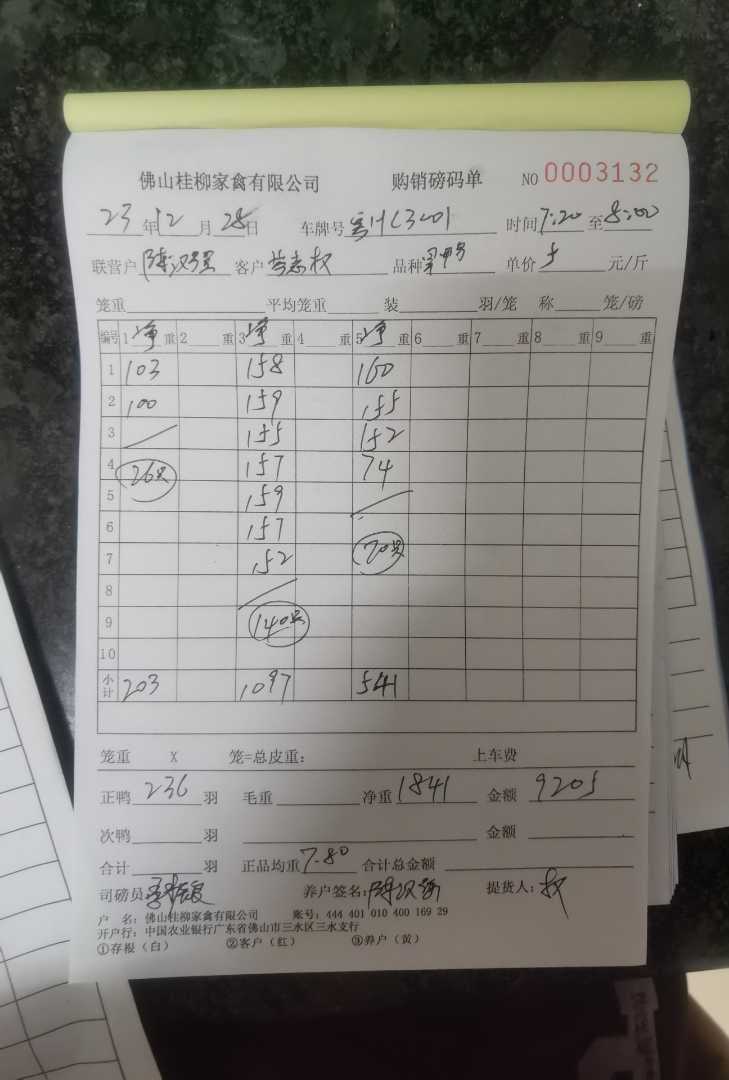 佛山桂柳家禽有限公司 购销磅码单 NO 0003132
23年12月28日 车牌号 时间7:20至8:00
联营户陈汉强 客户 志权 品种 单价5元/斤
笼重 平均笼重 装 羽/笼 称 笼/磅
编号 1净重 2 重 3净重 4 重 5净重 6 重 7 重 8 重 9 重
1 103 158 160
2 100 159 155
3 155 152
4 26只 157 74
5 159
6 157
7 152 70只
8
9 140只
10
小计 203 1097 541
笼重 X 笼=总皮重: 上车费
正鸭236羽 毛重 净重1841 金额9205
次鸭 羽 金额
合计 羽 正品均重7.80 合计总金额
司磅员 养户签名:陈汉强 提货人:权
户 名: 佛山桂柳家禽有限公司 账号: 444 401 010 400 169 29
开户行: 中国农业银行广东省佛山市三水区三水支行
①存根(白) ②客户(红) ③养户(黄)